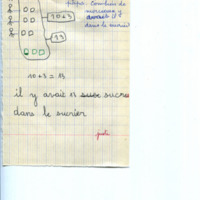 Combien de
morceaux y
avait il
dans le sucrier
10+3
13
10+3 = 13
il y avait 13 sucre
dans le sucrier
juste